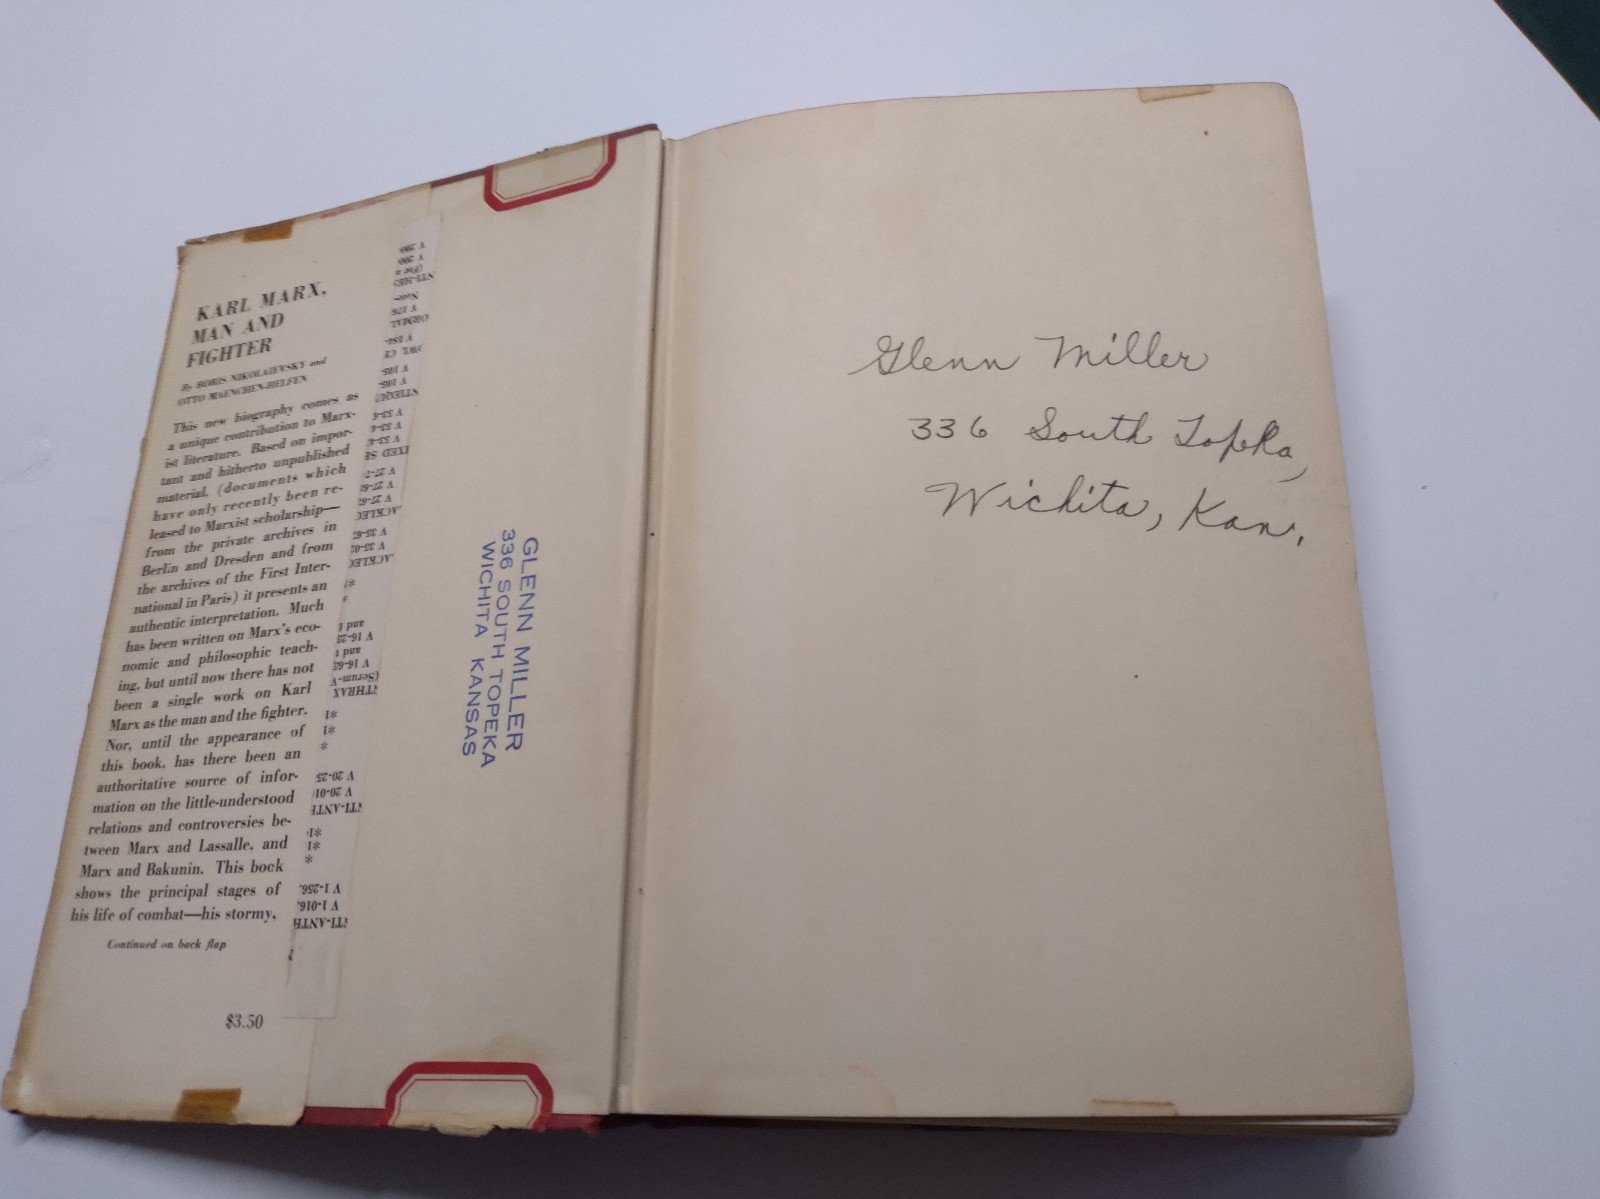 KARL MARX,
MAN AND
FIGHTER
By BORIS NIKOLAIEVSKY and
OTTO MAENCHEN-HELFEN
This new biography comes as
a unique contribution to Marx-
ist literature. Based on impor-
tant and hitherto unpublished
material, (documents which
have only recently been re-
leased to Marxist scholarship—
from the private archives in
Berlin and Dresden and from
the archives of the First Inter-
national in Paris) it presents an
authentic interpretation. Much
has been written on Marx's eco-
nomic and philosophic teach-
ing, but until now there has not
been a single work on Karl
Marx as the man and the fighter.
Nor, until the appearance of
this book, has there been an
authoritative source of infor-
mation on the little-understood
relations and controversies be-
tween Marx and Lassalle, and
Marx and Bakunin. This book
shows the principal stages of
his life of combat—his stormy,
Continued on back flap
$3.50
GLENN MILLER
336 SOUTH TOPEKA
WICHITA KANSAS
Glenn Miller
336 South Topeka,
Wichita, Kan.